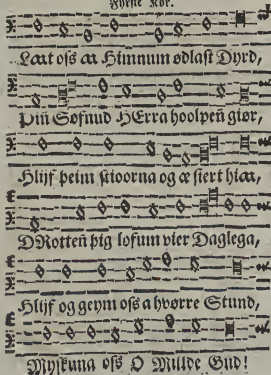 Fyrste Kor.
Laat oss aa Himnum ødlast Dyrd,
Þiñ Søfnud HErra hoolpeñ giør,
Hlijf þeim stioorna og æ siert hiaa,
DRotteñ þig lofum vier Daglega,
Hlijf og geym oss a hvørre Stund,
Myskuna oss O Millde Gud!